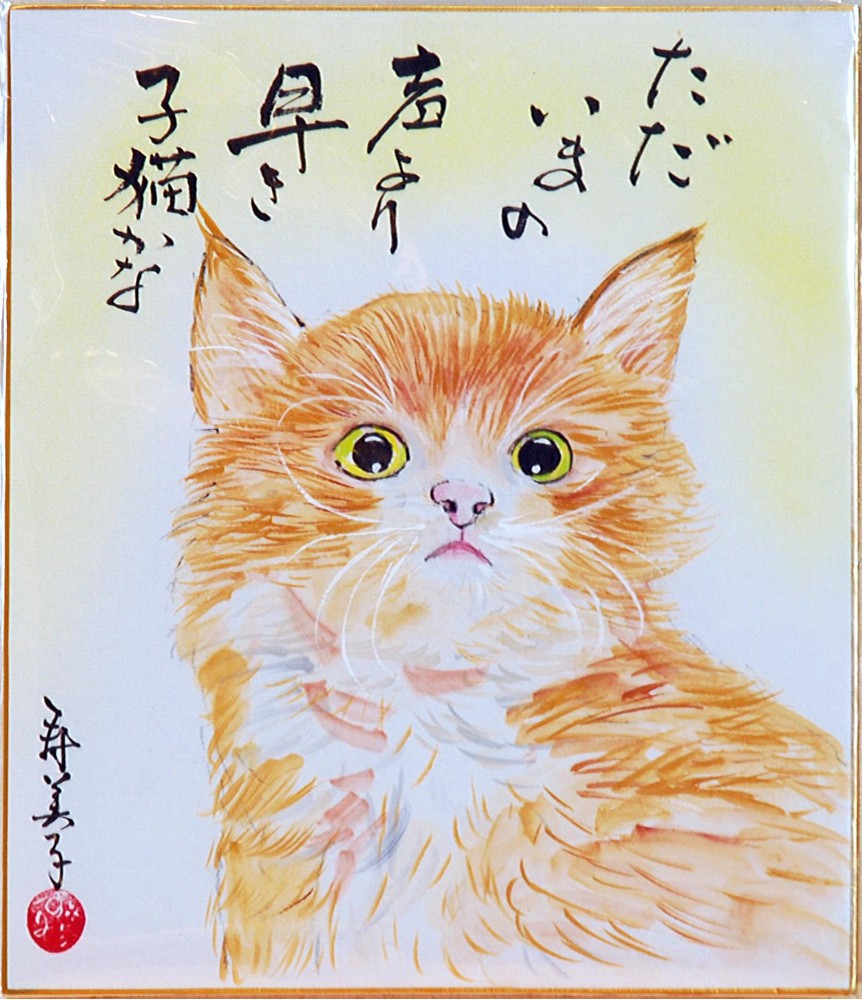 ただ
いまの
声より
早き
子猫かな
寿美子